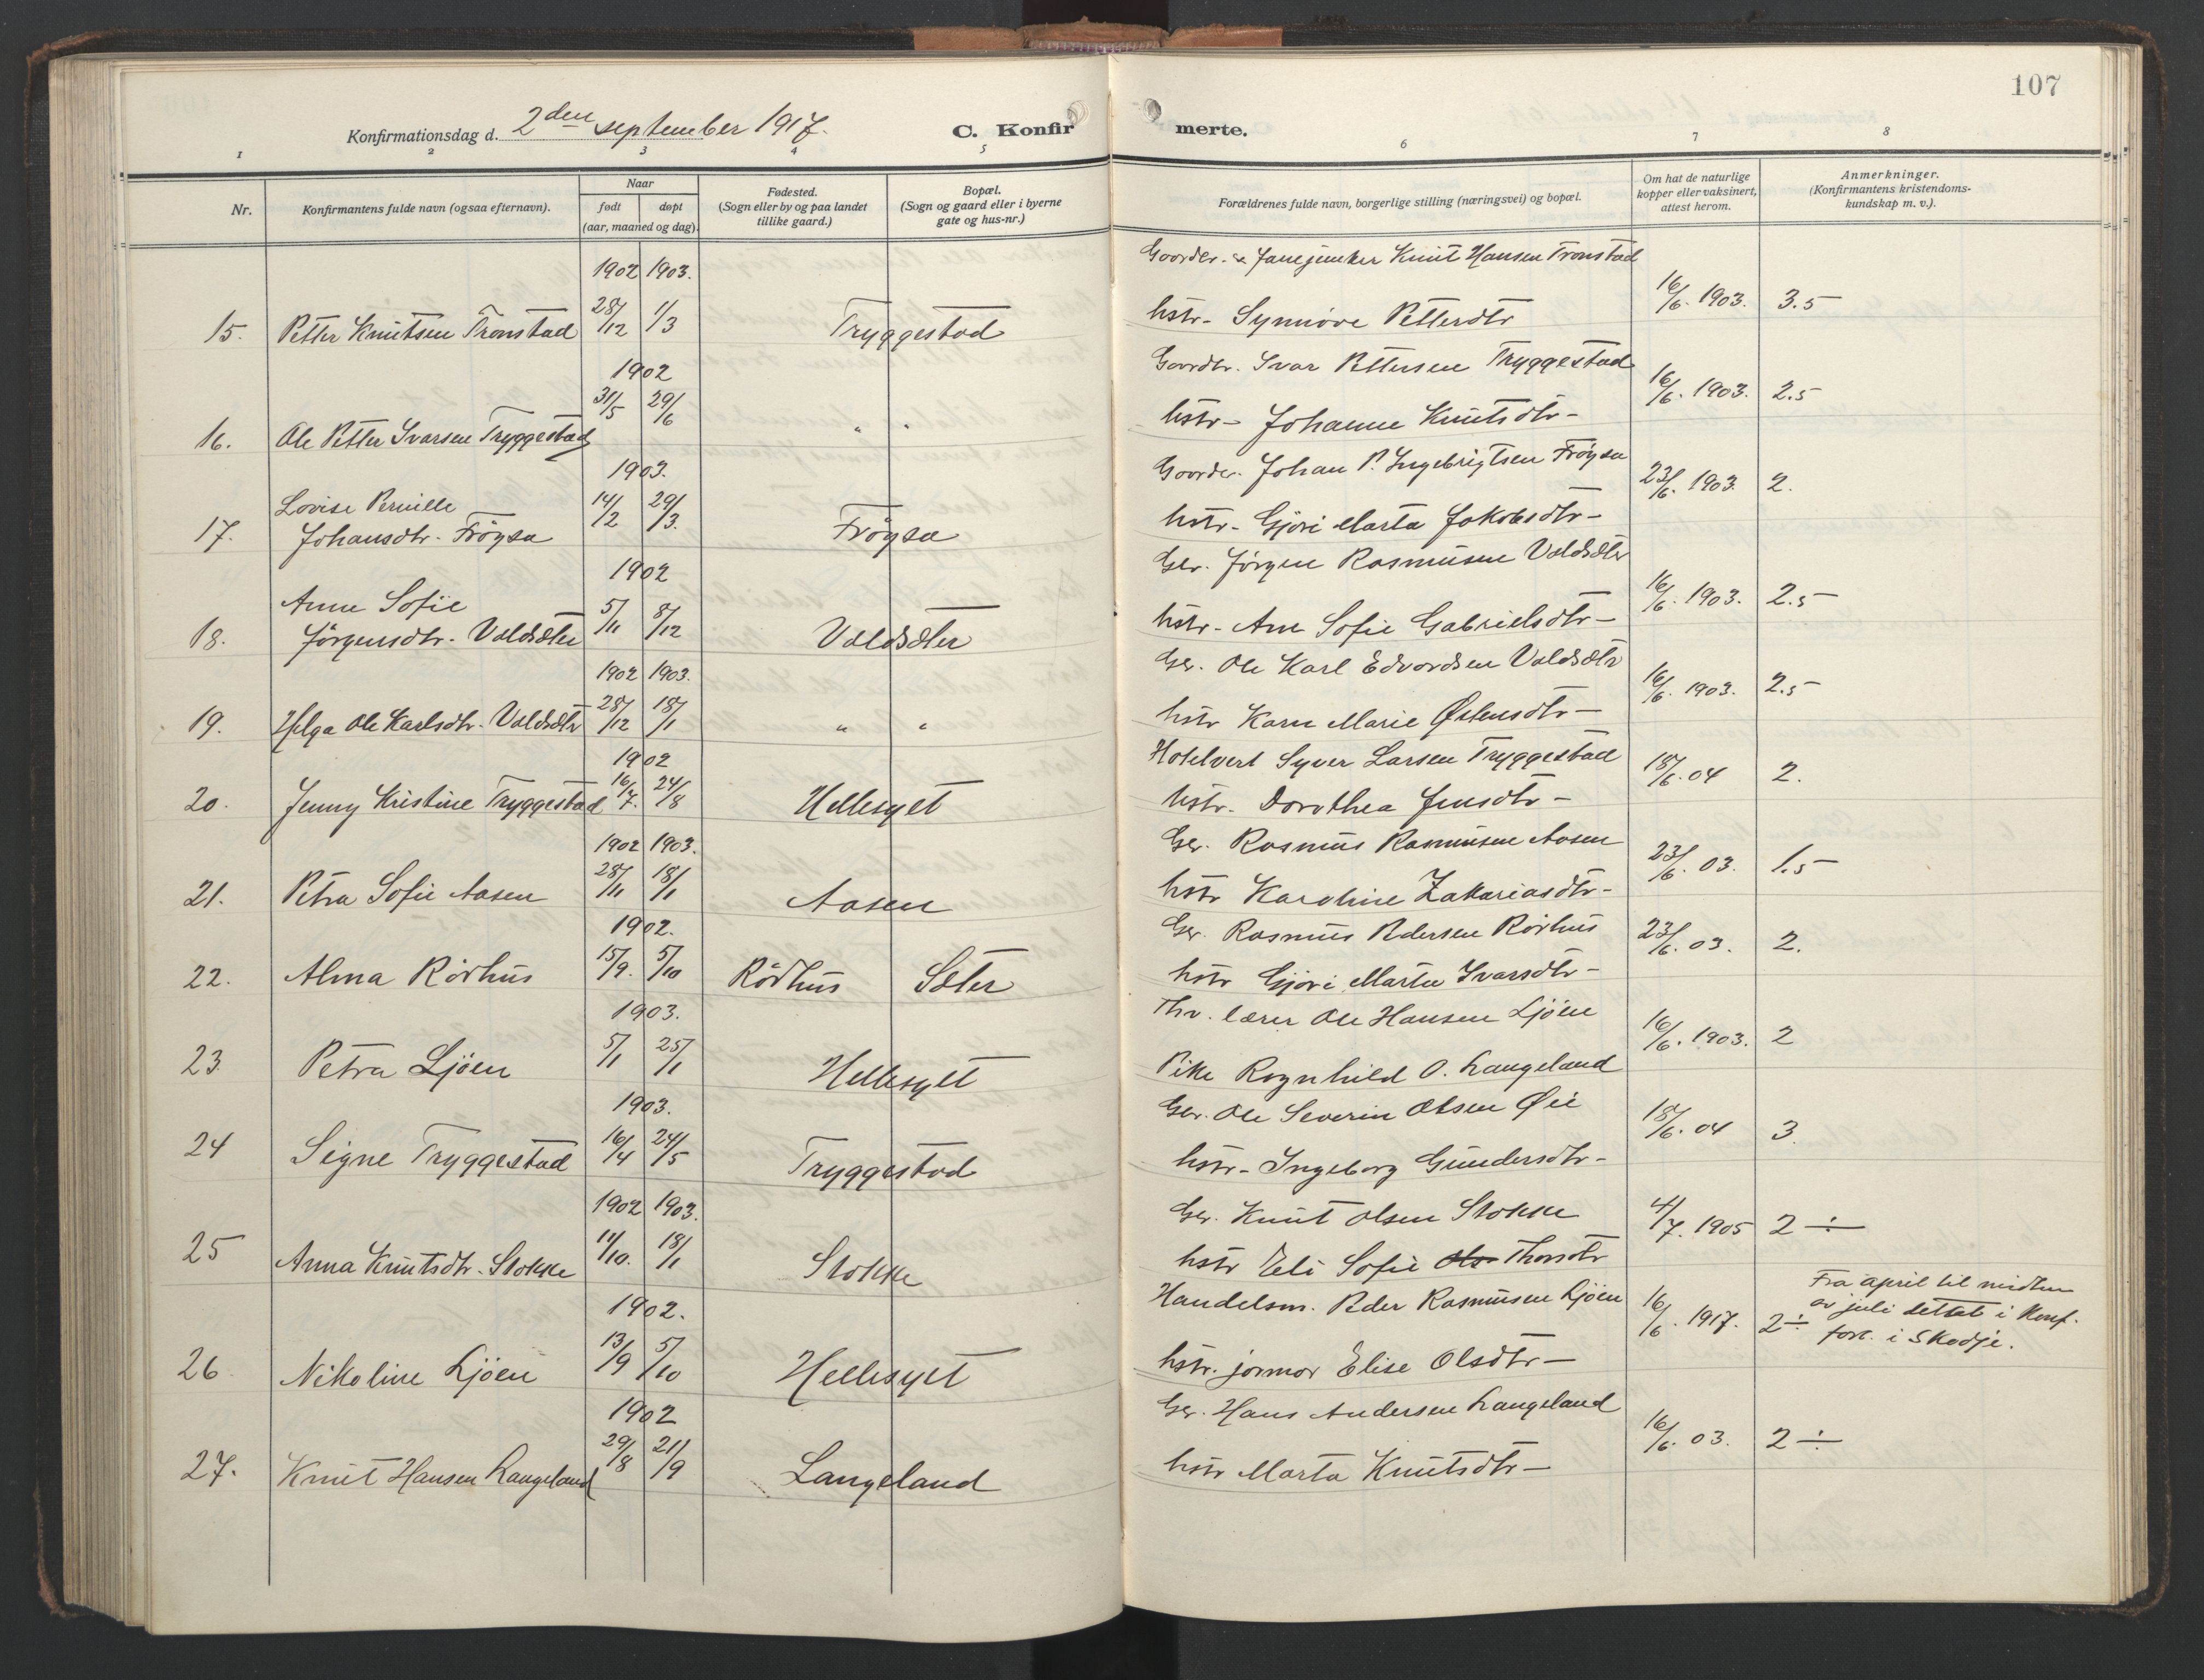 107
Konfirmationsdag d. 2den september 1917. C. Konfirmerte.
1 2 3 4 5 6 7 8
Nr. Konfirmantens fulde navn (ogsaa efternavn). Naar født døpt (aar, maaned og dag). Fødested. (Sogn eller by og paa landet tillike gaard.) Bopæl. (Sogn og gaard eller i byerne gate og hus-nr.) Forældrenes fulde navn, borgerlige stilling (næringsvei) og bopæl. Om hat de naturlige kopper eller vaksinert, attest herom. Anmerkninger. (Konfirmantens kristendomskundskap m. v.).
1902 1903. Knut Hansen Tronstad
15. Petter Knutsen Tronstad 28/12 1/3 Tryggestad hstr- Synnöve Petterdtr 16/6. 1903. 3.5
1902 Gaardbr. Ivar Pettersen Tryggestad
16. Ole Petter Ivarsen Tryggestad 31/5 29/6 " " hstr- Johanne Knutsdtr- 16/6. 1903. 2.5
1903. Johan P. Ingebrigtsen Fröysa
17. Lovise Pernille Johansdtr. Fröysa 14/2 29/3. Fröysa hstr- Gjøri Marta Jakobsdtr- 23/6. 1903. 2.
1902 Gbr. Jörgen Rasmusen Valdsæter
18. Anne Sofie Jörgensdtr. Valdsæter 5/11 8/12 Valdsæter hstr- Ane Sofie Gabrielsdtr- 16/6. 1903. 2.5
1902 1903. Gbr. Ole Karl Edvardsen Valdsætr
19. Helga Ole Karlsdtr. Valdsætr 28/12 18/1 " " hstr Karn Marie Østensdtr- 16/6. 1903. 2.5
1902 Hotelvert Syver Larsen Tryggestad
20. Jenny Kristine Tryggestad 16/7. 24/8 Hellesylt hstr. Dorothea Jensdtr- 18/6. 04 2.
1902 1903. Gbr. Rasmus Rasmusen Aasen
21. Petra Sofie Aasen 28/11 18/1 Aasen hstr Karoline Zakariasdtr- 23/6. 03. 1.5
1902. Gbr. Rasmus Pedersen Rörhus
22. Alma Rörhus 15/9. 5/10 Rörhus Sæter hstr Gjøri Marta Ivarsdtr- 23/6. 03. 2.
1903. Thv. lærer Ole Hansen Ljöen
23. Petra Ljöen 5/1 25/1 Hellesylt Pike Ragnhild O. Langeland 16/6. 1903. 2
1903. Gbr. Ole Severin Olsen Øie
24 Signe Tryggestad 16/4 24/5 Tryggestad hstr- Ingeborg Gundersdtr- 18/6. 04 3.
1902 1903. Gbr. Knut Olsen Stokke
25 Anna Knutsdtr. Stokke 11/10. 18/1 Stokke hstr Eli Sofie Thorsdtr 4/7. 1905 2 ÷
1902. Handelsm. Peder Rasmusen Ljöen
26. Nikoline Ljöen 13/9 5/10 Hellesylt hstr. jormor Elise Olsdtr- 16/6. 1917. 2 ÷ Fra april til midten av juli deltat i Konf. forb. i Skodje.
1902 Gbr. Hans Andersen Langeland
27. Knut Hansen Langeland 29/8 21/9 Langeland hstr Marta Knutsdtr- 16/6. 03. 2 ÷